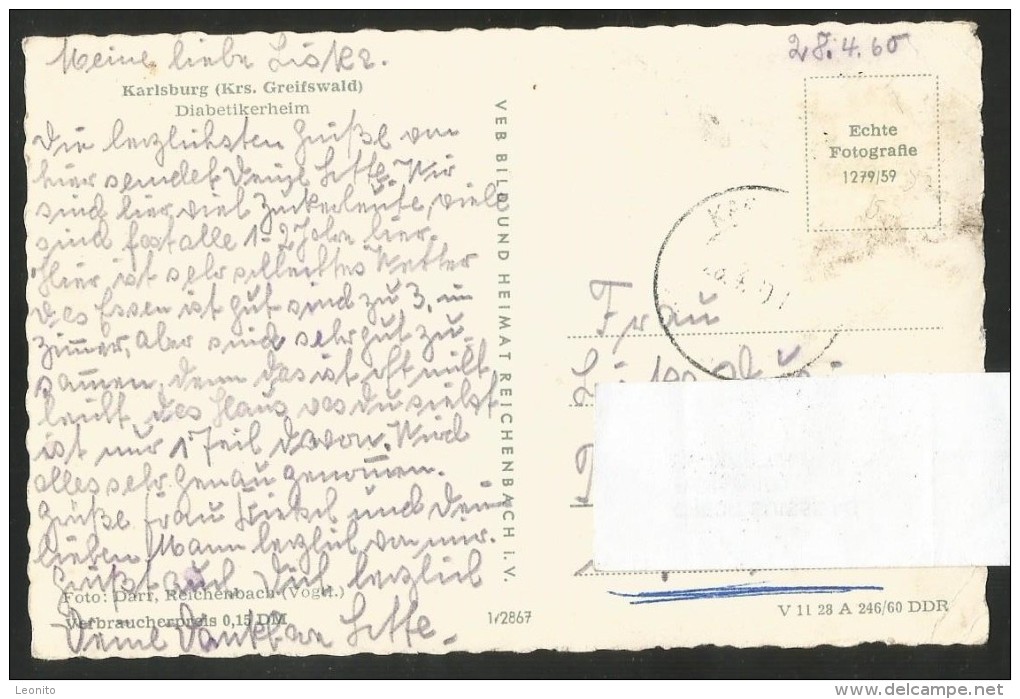 Meine liebe
28.4.60
Karlsburg (Krs. Greifswald)
Diabetikerheim
Die herzlichsten Grüße von
hier sendet Deine Lotte. Wir
sind hier viel Zuckerleute, viele
sind fast alle 1-2 Jahre hier.
Hier ist sehr schlechtes Wetter
des Essen ist gut sind zu 3. im
Zimmer, aber sind sehr gut zu-
sammen, denn das ist oft nicht
leicht des Haus was du siehst
ist nur 1 Teil davon. Wird
alles sehr Genau genommen.
Grüße Frau und dein
lieben Mann herzlich von mir.
Grüßt auch Dich herzlich
Foto: Darr, Reichenbach (Vogtl.)
Verbraucherpreis 0,15 DM
Deine Dankbare Lotte.
VEB BILD UND HEIMAT REICHENBACH i. V.
1/2867
Echte
Fotografie
1279/59
Frau
V 11 28 A 246/60 DDR
Leonito
delcampe.net